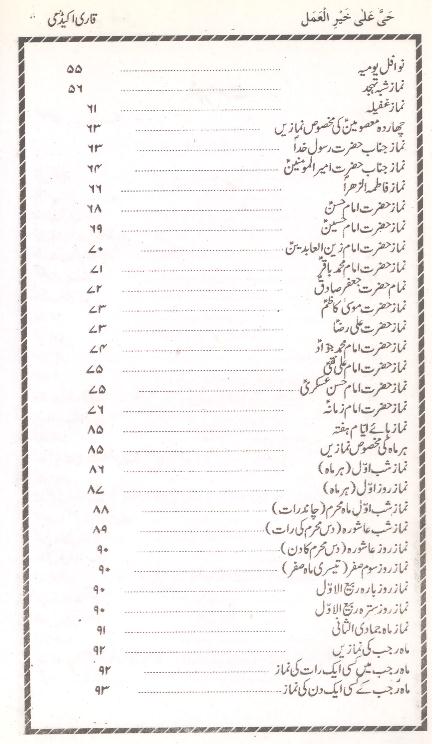 حَیَّ عَلٰی خَیْرِ الْعَمَل قاری اکیڈمی
نوافل یومیہ ۵۵
نماز شب تہجد ۵۶
نماز غفیلہ ۶۱
چہاردہ معصومینؑ کی مخصوص نمازیں ۶۳
نماز جناب حضرت رسول خداؐ ۶۳
نماز جناب حضرت امیر المومنینؑ ۶۴
نماز فاطمۃ الزھراؑ ۶۶
نماز حضرت امام حسنؑ ۶۸
نماز حضرت امام حسینؑ ۶۹
نماز حضرت امام زین العابدینؑ ۷۰
نماز حضرت امام محمد باقرؑ ۷۱
نمام حضرت جعفر صادقؑ ۷۲
نماز حضرت موسیٰ کاظمؑ ۷۳
نماز حضرت علی رضاؑ ۷۳
نماز حضرت امام محمد جوادؑ ۷۴
نماز حضرت امام علی نقیؑ ۷۵
نماز حضرت امام حسن عسکریؑ ۷۵
نماز حضرت امام زمانہؑ ۷۶
نماز ہائے ایام ہفتہ ۸۵
ہر ماہ کی مخصوص نمازیں ۸۵
نماز شب اوّل (ہر ماہ) ۸۶
نماز روز اوّل (ہر ماہ) ۸۷
نماز شب اوّل ماہ محرم (چاند رات) ۸۸
نماز شب عاشورہ (دس محرم کی رات) ۸۹
نماز روز عاشورہ (دس محرم کا دن) ۹۰
نماز روز سوم صفر (تیسری ماہ صفر) ۹۰
نماز روز بارہ ربیع الاوّل ۹۰
نماز روز سترہ ربیع الاوّل ۹۰
نماز ماہ جمادی الثانی ۹۱
ماہ رجب کی نمازیں ۹۲
ماہ رجب میں کسی ایک رات کی نماز ۹۲
ماہ رجب کے کسی ایک دن کی نماز ۹۳